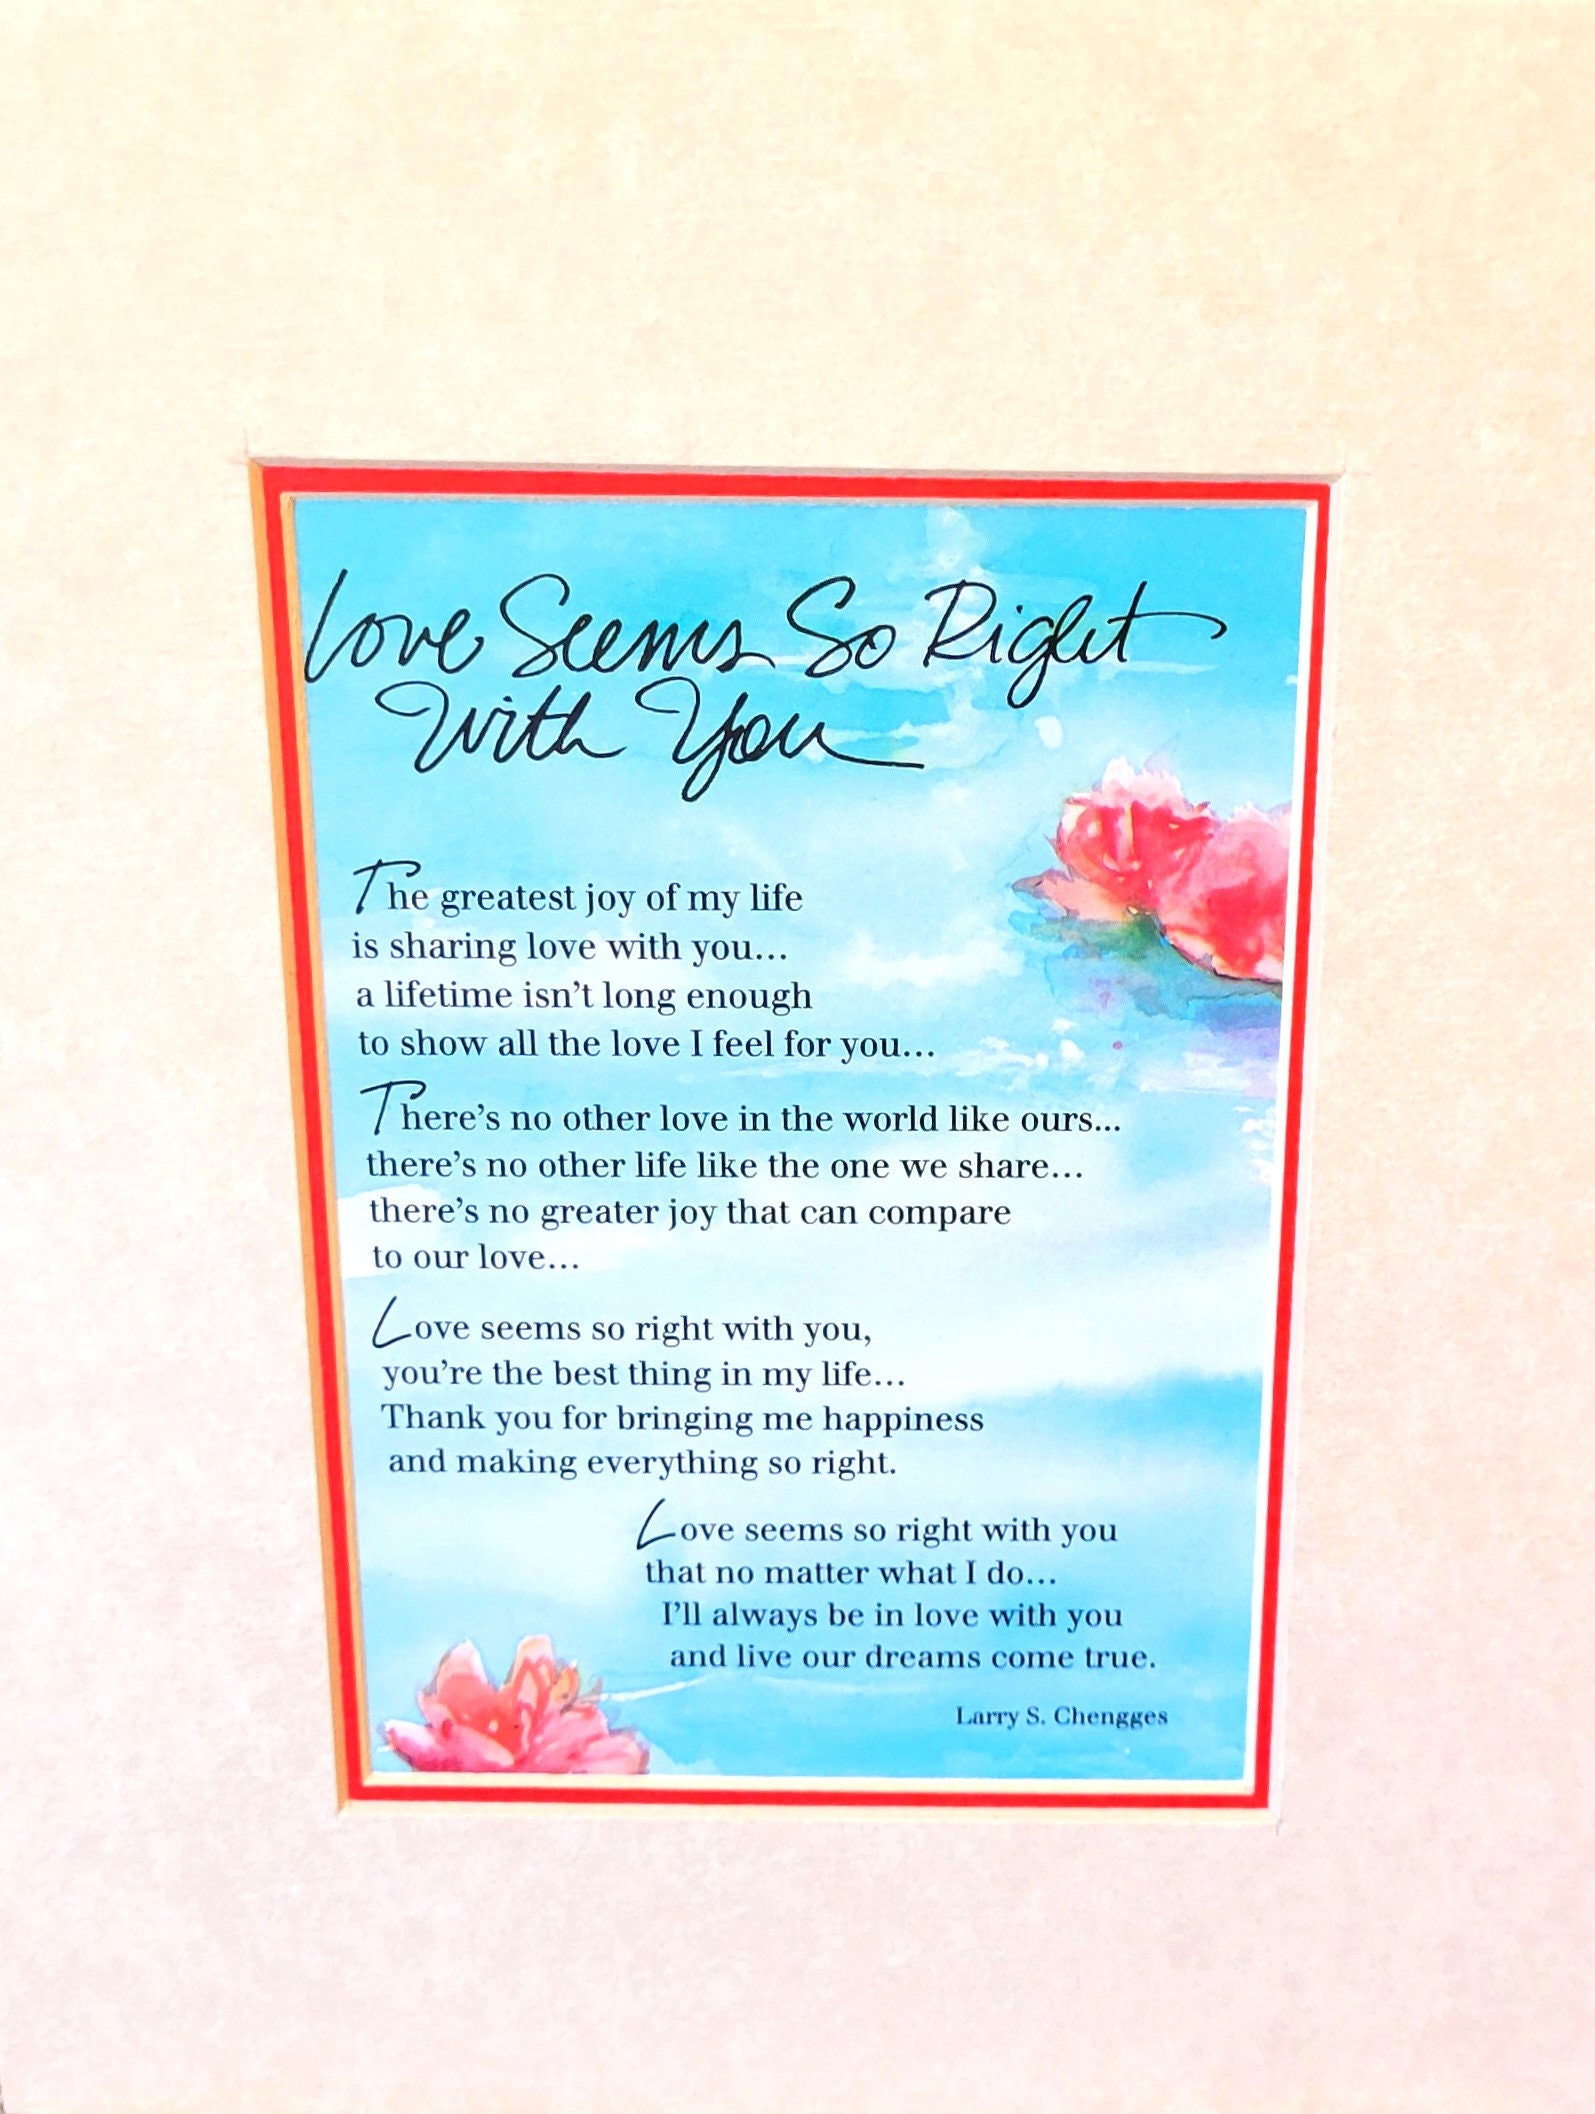 Love Seems So Right
With You
The greatest joy of my life
is sharing love with you...
a lifetime isn't long enough
to show all the love I feel for you...
There's no other love in the world like ours...
there's no other life like the one we share...
there's no greater joy that can compare
to our love...
Love seems so right with you,
you're the best thing in my life...
Thank you for bringing me happiness
and making everything so right.
Love seems so right with you
that no matter what I do...
I'll always be in love with you
and live our dreams come true.
Larry S. Chengges